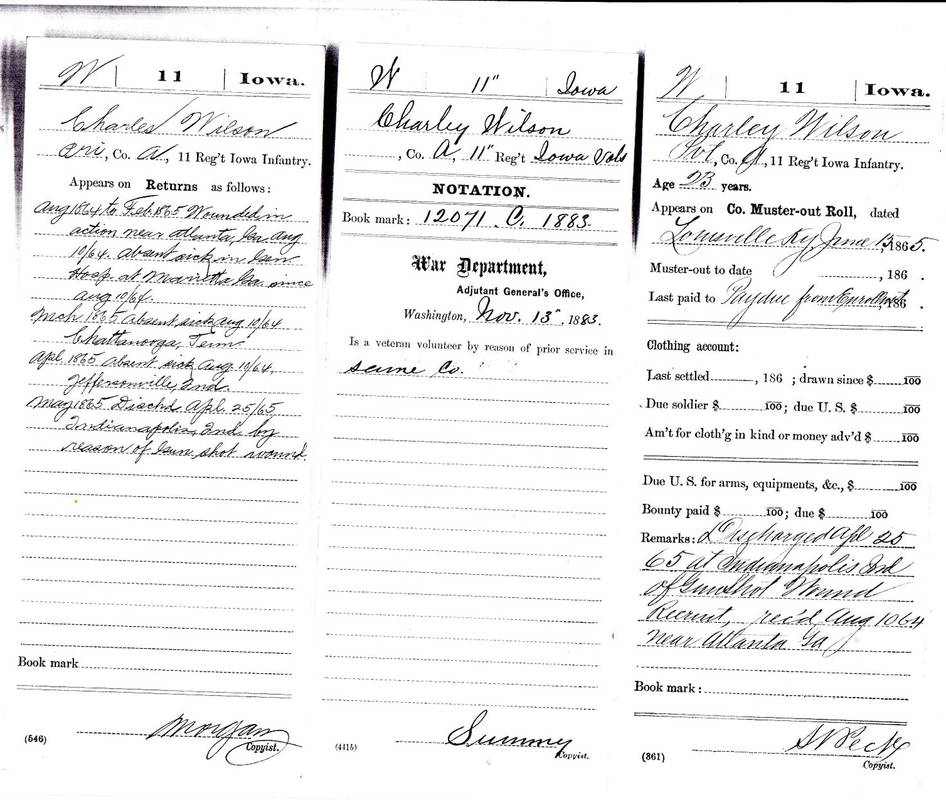 W | 11 | Iowa.
Charles Wilson
Pri, Co. A, 11 Reg't Iowa Infantry.
Appears on Returns as follows:
Aug 1864 to Feb. 1865 Wounded in
action near Atlanta, Ga Aug
10/64. Absent sick in Gen
Hosp. at Marietta Ga. since
Aug 10/64.
Mch 1865 Absent sick Aug 10/64
Chattanooga, Tenn
Apl. 1865 Absent sick Aug. 10/64,
Jeffersonville Ind.
May 1865 Dischd Apl. 25/65
Indianapolis, Ind by
reason of Gun shot wound
Book mark
Morgan
Copyist.
(546)
W | 11" | Iowa
Charley Wilson
, Co. A, 11" Reg't Iowa Vols
NOTATION.
Book mark: 12071. C. 1883.
War Department,
Adjutant General's Office,
Washington, Nov. 13", 1883.
Is a veteran volunteer by reason of prior service in
same Co.
Summy
Copyist.
(4415)
W | 11 | Iowa.
Charley Wilson
Pvt, Co. A, 11 Reg't Iowa Infantry.
Age 23 years.
Appears on Co. Muster-out Roll, dated
Louisville Ky, June 15, 1865.
Muster-out to date , 186 .
Last paid to Pay due from Enrollment, 186 .
Clothing account:
Last settled , 186 ; drawn since $ 100
Due soldier $ 100; due U. S. $ 100
Am't for cloth'g in kind or money adv'd $ 100
Due U. S. for arms, equipments, &c., $ 100
Bounty paid $ 100; due $ 100
Remarks: Discharged Apl 25
65 at Indianapolis Ind
of Gunshot Wound
Recruit, rec'd Aug 10 64
near Atlanta Ga
Book mark:
Copyist.
(361)